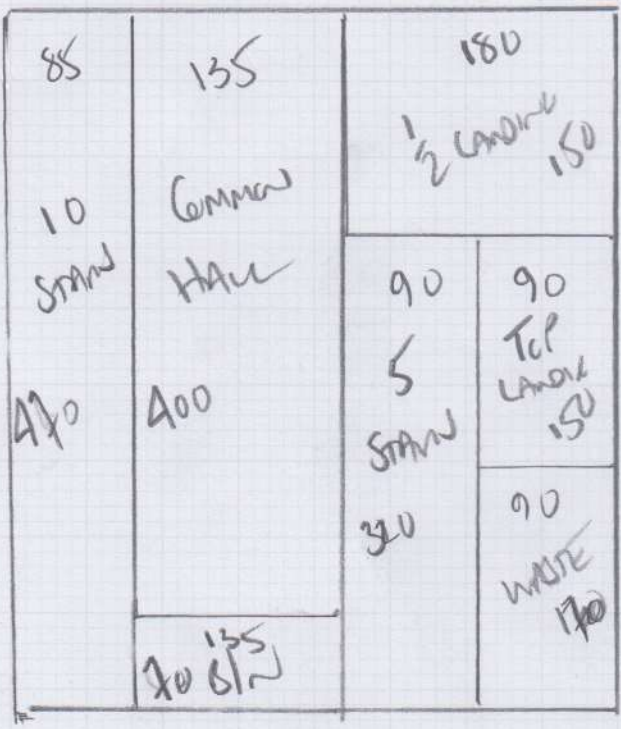 85
10
STAIRS
470
135
COMMON
HALL
400
135
70 BIN
180
1/2 LANDING
150
90
5
STAIRS
320
90
TOP
LANDING
150
90
WASTE
170